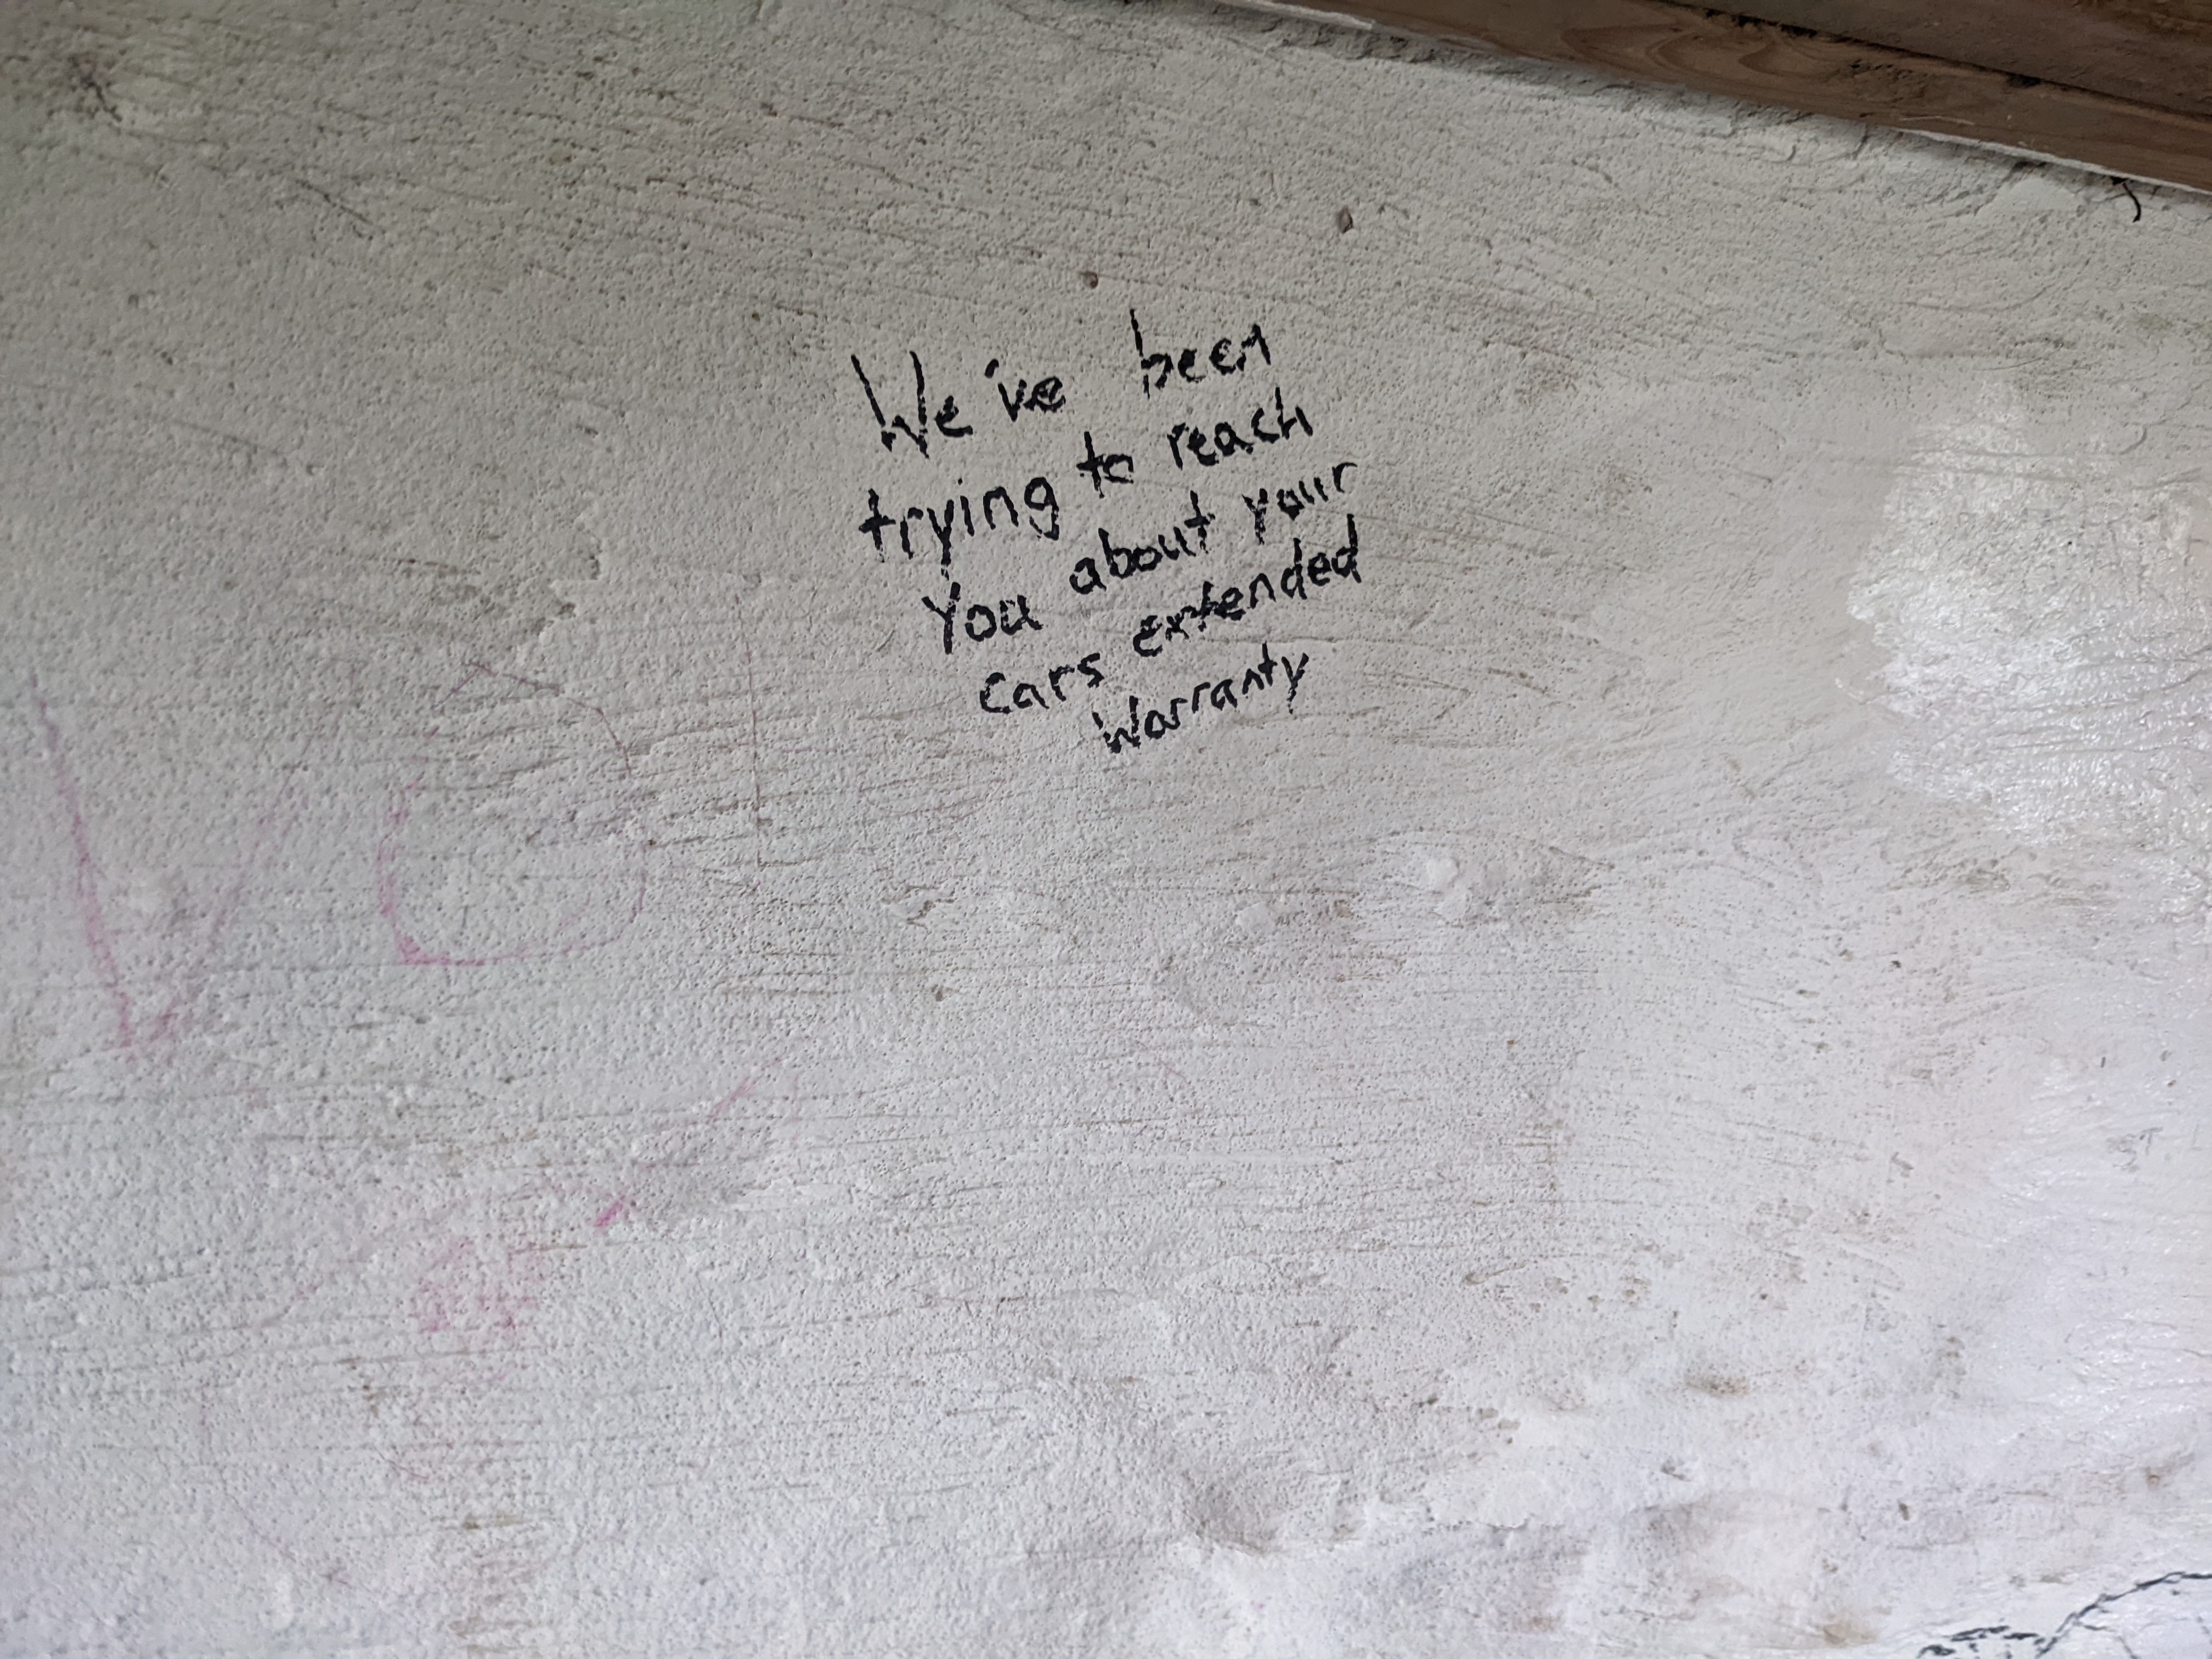 We've been
trying to reach
you about your
cars extended
warranty
ST